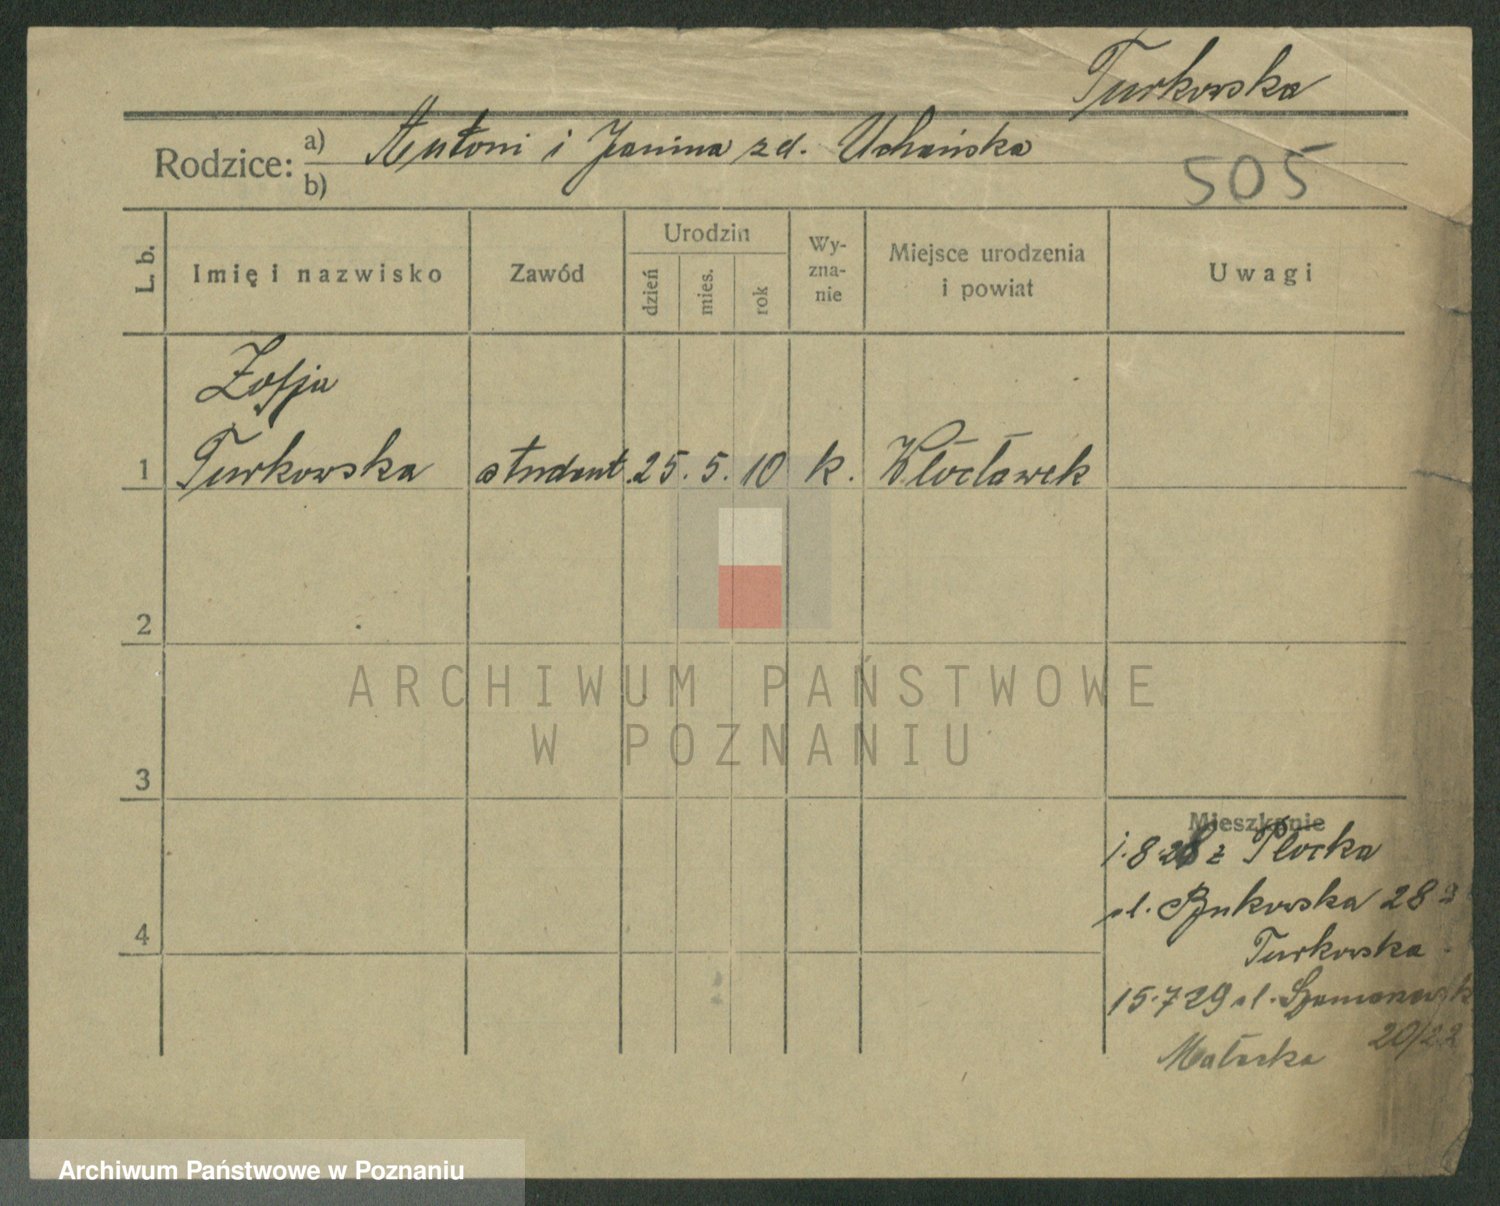 Turkowska
Rodzice: a) Antoni i Janina zd. Uchańska
b)
505
L. b.
Imię i nazwisko
Zawód
Urodzin
dzień
mies.
rok
Wy-
zna-
nie
Miejsce urodzenia
i powiat
Uwagi
Zofja
1 Turkowska student 25. 5. 10 k. Włocławek
2
ARCHIWUM PAŃSTWOWE
W POZNANIU
3
Mieszkanie
1.8 28 z Płocka
ul. Bukowska 28
Turkowska
4
15.7 29 ul.
20/22
Małecka
Archiwum Państwowe w Poznaniu